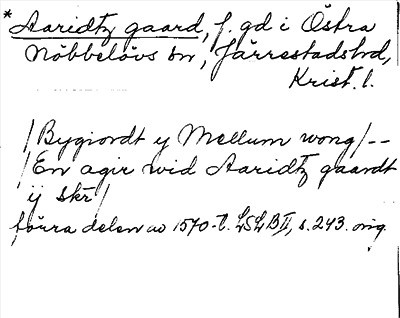 * Aaridtz gaard, f. gd i Östra
Nöbbelövs sn, Järrestads hd,
Krist. l.
/Bygiordt y Mellum wong/--
/En agir wid Aaridtz gaardt
ij skr/
förra delen av 1570-t. LSLB II, s. 243. orig.